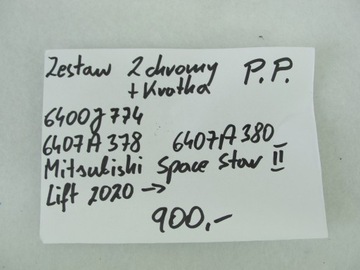 Zestaw 2 chromy P.P.
+ Kratka
6400J774
6407A378 6407A380
Mitsubishi Space Star II
Lift 2020 →
900,-